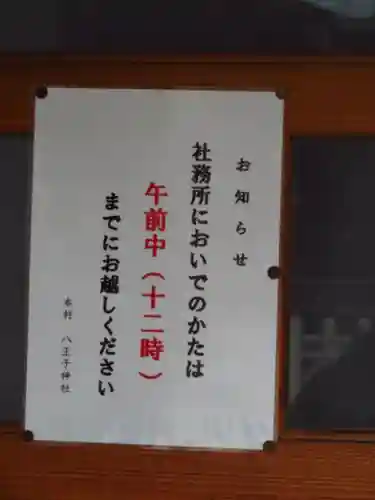 お知らせ
社務所においでのかたは
午前中（十二時）
までにお越しください
本軒 八王子神社